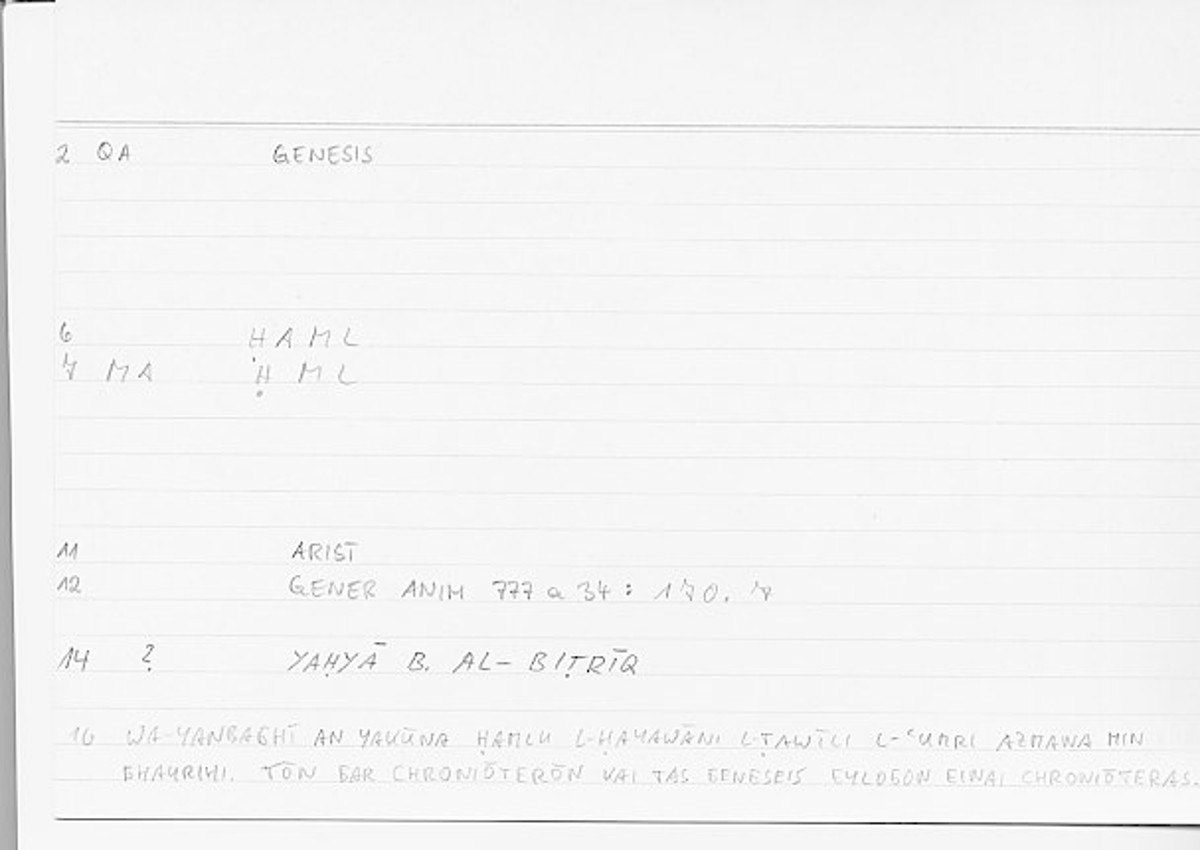 2 QA GENESIS
6 ḤAML
7 MA ḤML
11 ARIST
12 GENER ANIM 777 a 34 : 170. 7
14 ? YAḤYĀ B. AL-BIṬRĪQ
16 WA-YANBAGHĪ AN YAKŪNA ḤAMLU L-ḤAYAWĀNI L-ṬAWĪLI L-ʿUMRI AZMANA MIN
GHAYRIHI. TŌN GAR CHRONIŌTERŌN KAI TAS GENESEIS EYLOGON EINAI CHRONIŌTERAS.